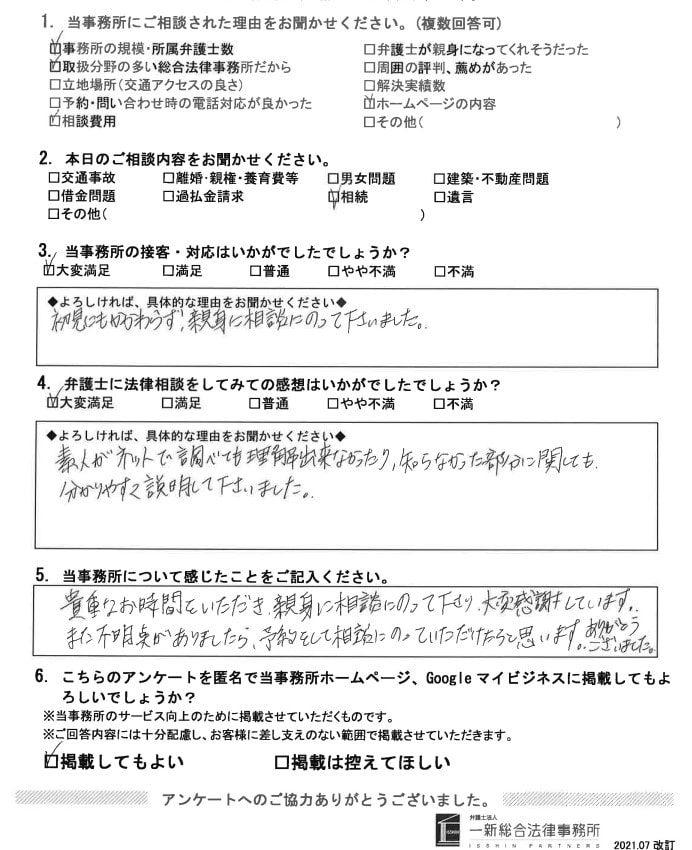 1. 当事務所にご相談された理由をお聞かせください。(複数回答可)
☑事務所の規模・所属弁護士数 □弁護士が親身になってくれそうだった
☑取扱分野の多い総合法律事務所だから □周囲の評判、薦めがあった
□立地場所(交通アクセスの良さ) □解決実績数
□予約・問い合わせ時の電話対応が良かった ☑ホームページの内容
☑相談費用 □その他( )
2. 本日のご相談内容をお聞かせください。
□交通事故 □離婚・親権・養育費等 □男女問題 □建築・不動産問題
□借金問題 □過払金請求 ☑相続 □遺言
□その他( )
3. 当事務所の接客・対応はいかがでしたでしょうか?
☑大変満足 □満足 □普通 □やや不満 □不満
◆よろしければ、具体的な理由をお聞かせください◆
初見にもかかわらず、親身に相談にのって下さいました。
4. 弁護士に法律相談をしてみての感想はいかがでしたでしょうか?
☑大変満足 □満足 □普通 □やや不満 □不満
◆よろしければ、具体的な理由をお聞かせください◆
素人がネットで調べても理解出来なかったり、知らなかった部分に関しても
分かりやすく説明して下さいました。
5. 当事務所について感じたことをご記入ください。
貴重なお時間をいただき、親身に相談にのって下さり、大変感謝しています。
また不明点がありましたら、予約をして相談にのっていただけたらと思います。ありがとう
ございました。
6. こちらのアンケートを匿名で当事務所ホームページ、Googleマイビジネスに掲載してもよ
ろしいでしょうか?
※当事務所のサービス向上のために掲載させていただくものです。
※ご回答内容には十分配慮し、お客様に差し支えのない範囲で掲載させていただきます。
☑掲載してもよい □掲載は控えてほしい
アンケートへのご協力ありがとうございました。
弁護士法人
ISSHIN 一新総合法律事務所
ISSHIN PARTNERS 2021.07 改訂